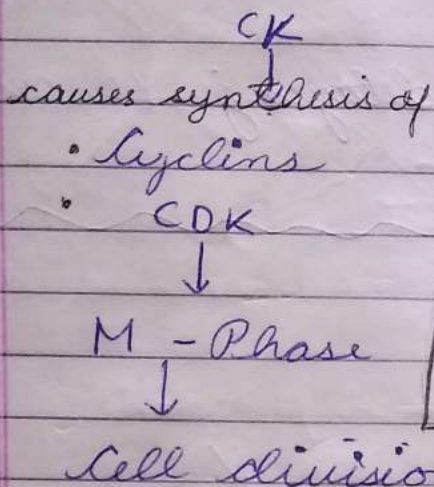 CK
↓
causes synthesis of
• Cyclins
• CDK
↓
M - Phase
↓
Cell divisio